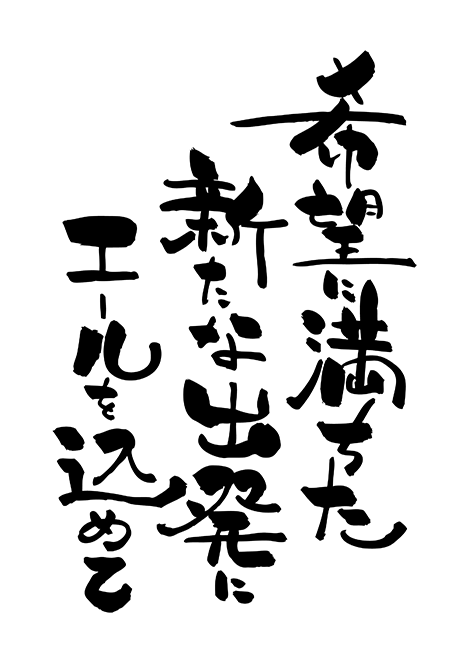 希望に満ちた
新たな出発に
エールを込めて